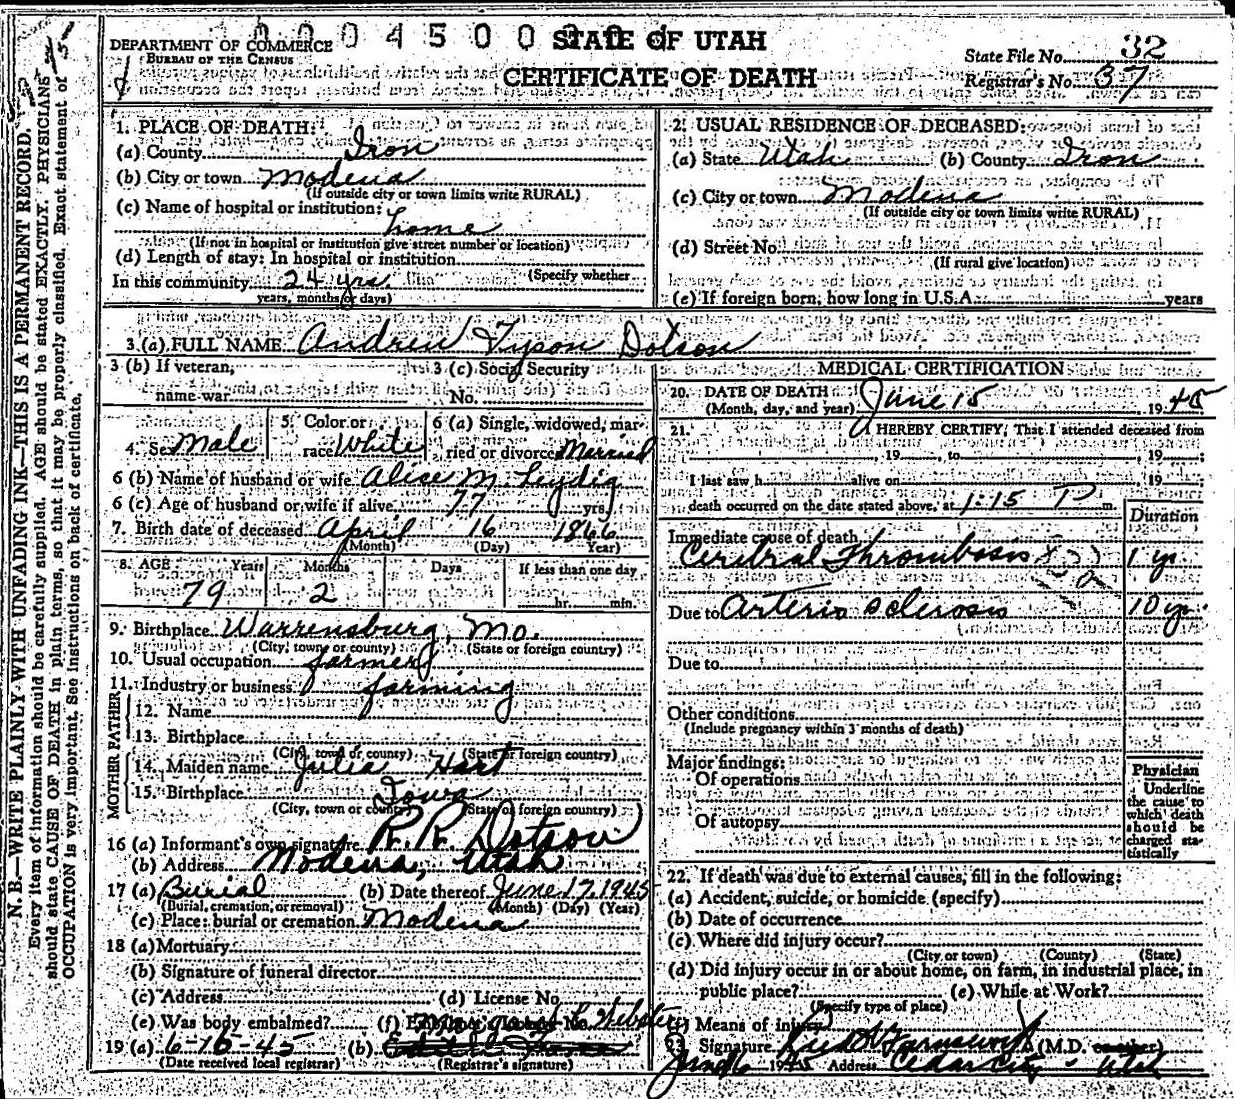 DEPARTMENT OF COMMERCE
BUREAU OF THE CENSUS
STATE OF UTAH
CERTIFICATE OF DEATH
State File No. 32
Registrar's No. 37
N. B.—WRITE PLAINLY WITH UNFADING INK—THIS IS A PERMANENT RECORD.
Every item of information should be carefully supplied. AGE should be stated EXACTLY. PHYSICIANS
should state CAUSE OF DEATH in plain terms, so that it may be properly classified. Exact statement of
OCCUPATION is very important. See instructions on back of certificate.
1. PLACE OF DEATH:
(a) County Iron
(b) City or town Modena
(If outside city or town limits write RURAL)
(c) Name of hospital or institution:
home
(If not in hospital or institution give street number or location)
(d) Length of stay: In hospital or institution
(Specify whether
In this community 24 yrs.
years, months or days)
2. USUAL RESIDENCE OF DECEASED:
(a) State Utah (b) County Iron
(c) City or town Modena
(If outside city or town limits write RURAL)
(d) Street No.
(If rural give location)
(e) If foreign born, how long in U.S.A. years
3. (a) FULL NAME Andrew Tyson Dotson
3 (b) If veteran, 3 (c) Social Security
name war No.
4. Sex Male 5. Color or race White 6 (a) Single, widowed, married or divorced Married
6 (b) Name of husband or wife Alice M. Leydig
6 (c) Age of husband or wife if alive 77 yrs.
7. Birth date of deceased April 16 1866
(Month) (Day) Year)
8. AGE Years Months Days If less than one day
79 2 hr. min.
9. Birthplace Warrensburg, Mo.
(City, town or county) (State or foreign country)
10. Usual occupation farmer
11. Industry or business farming
FATHER
12. Name
13. Birthplace
(City, town or county) (State or foreign country)
MOTHER
14. Maiden name Julia Hart
15. Birthplace Iowa
(City, town or county) (State or foreign country)
16 (a) Informant's own signature R. R. Dotson
(b) Address Modena, Utah
17 (a) Burial (b) Date thereof June 17, 1945
(Burial, cremation, or removal) (Month) (Day) (Year)
(c) Place: burial or cremation Modena
18 (a) Mortuary
(b) Signature of funeral director
(c) Address (d) License No.
(e) Was body embalmed? (f)
19 (a) 6-16-45 (b)
(Date received local registrar) (Registrar's signature)
MEDICAL CERTIFICATION
20. DATE OF DEATH June 15, 1945
(Month, day, and year)
21. I HEREBY CERTIFY, That I attended deceased from
, 19 , to , 19 ;
I last saw h alive on , 19 ;
death occurred on the date stated above, at 1:15 P m.
Duration
Immediate cause of death
Cerebral Thrombosis 1 yr.
Due to Arterio sclerosis 10 yr.
Due to
Other conditions
(Include pregnancy within 3 months of death)
Major findings:
Of operations
Of autopsy
Physician
Underline
the cause to
which death
should be
charged sta-
tistically
22. If death was due to external causes, fill in the following:
(a) Accident, suicide, or homicide (specify)
(b) Date of occurrence
(c) Where did injury occur?
(City or town) (County) (State)
(d) Did injury occur in or about home, on farm, in industrial place, in
public place? (e) While at Work?
(Specify type of place)
(f) Means of injury
23 Signature Farnsworth (M.D.
June 16 1945 Address Cedar City Utah